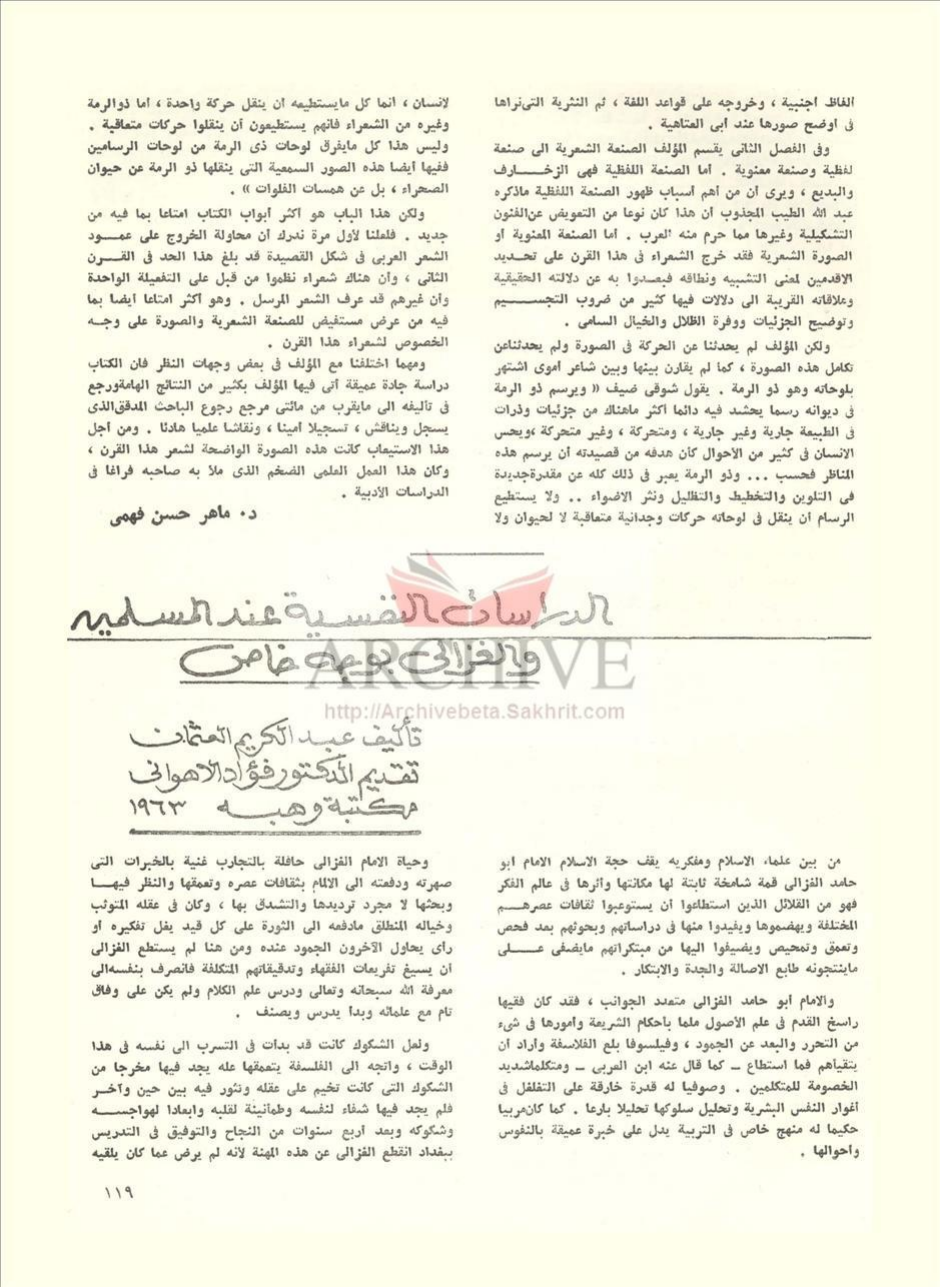 ألفاظ أجنبية ، وخروجه على قواعد اللغة ، ثم النثرية التى نراها
فى أوضح صورها عند أبى العتاهية .
وفى الفصل الثانى يقسم المؤلف الصنعة الشعرية الى صنعة
لفظية وصنعة معنوية . أما الصنعة اللفظية فهى الزخـــارف
والبديع ، ويرى أن من أهم أسباب ظهور الصنعة اللفظية ماذكره
عبد الله الطيب المجذوب أن هذا كان نوعا من التعويض عن الفنون
التشكيلية وغيرها مما حرم منه العرب . أما الصنعة المعنوية أو
الصورة الشعرية فقد خرج الشعراء فى هذا القرن على تحـديد
الأقدمين لمعنى التشبيه ونطاقه فبعدوا به عن دلالته الحقيقية
وعلاقاته القريبة الى دلالات فيها كثير من ضروب التجســـيم
وتوضيح الجزئيات ووفرة الظلال والخيال السامى .
ولكن المؤلف لم يحدثنا عن الحركة فى الصورة ولم يحدثنا عن
تكامل هذه الصورة ، كما لم يقارن بينها وبين شاعر أموى اشتهر
بلوحاته وهو ذو الرمة . يقول شوقى ضيف « ويرسم ذو الرمة
فى ديوانه رسما يحشد فيه دائما أكثر ماهناك من جزئيات وذرات
فى الطبيعة جارية وغير جارية ، ومتحركة ، وغير متحركة ،ويحس
الانسان فى كثير من الأحوال كأن هدفه من قصيدته أن يرسم هذه
المناظر فحسب ... وذو الرمة يعبر فى ذلك كله عن مقدرة جديدة
فى التلوين والتخطيط والتظليل ونثر الاضواء .. ولا يستطيع
الرسام أن ينقل فى لوحاته حركات وجدانية متعاقبة لا لحيوان ولا
لانسان ، انما كل مايستطيعه أن ينقل حركة واحدة ، أما ذو الرمة
وغيره من الشعراء فانهم يستطيعون أن ينقلوا حركات متعاقبة .
وليس هذا كل مايفرق لوحات ذى الرمة من لوحات الرسامين
ففيها أيضا هذه الصور السمعية التى ينقلها ذو الرمة عن حيوان
الصحراء ، بل عن همسات الفلوات » .
ولكن هذا الباب هو أكثر أبواب الكتاب امتاعا بما فيه من
جديد . فلعلنا لأول مرة ندرك أن محاولة الخروج على عمــود
الشعر العربى فى شكل القصيدة قد بلغ هذا الحد فى القــرن
الثانى ، وأن هناك شعراء نظموا من قبل على التفعيلة الواحدة
وأن غيرهم قد عرف الشعر المرسل . وهو أكثر امتاعا أيضا بما
فيه من عرض مستفيض للصنعة الشعرية والصورة على وجــه
الخصوص لشعراء هذا القرن .
ومهما اختلفنا مع المؤلف فى بعض وجهات النظر فان الكتاب
دراسة جادة عميقة أتى فيها المؤلف بكثير من النتائج الهامة ورجع
فى تأليفه الى مايقرب من مائتى مرجع رجوع الباحث المدقق الذى
يسجل ويناقش ، تسجيلا أمينا ، ونقاشا علميا هادئا . ومن أجل
هذا الاستيعاب كانت هذه الصورة الواضحة لشعر هذا القرن ،
وكان هذا العمل العلمى الضخم الذى ملأ به صاحبه فراغا فى
الدراسات الأدبية .
د. ماهر حسن فهمى
الدراسات النفسية عند المسلمين
والغزالى بوجه خاص
ARCHIVE
http://Archivebeta.Sakhrit.com
تأليف عبد الكريم العثمان
تقديم الدكتور فؤاد الاهوانى
مكتبة وهبه ١٩٦٣
من بين علماء الاسلام ومفكريه يقف حجة الاسلام الامام أبو
حامد الغزالى قمة شامخة ثابتة لها مكانتها وأثرها فى عالم الفكر
فهو من القلائل الذين استطاعوا أن يستوعبوا ثقافات عصرهــم
المختلفة ويهضموها ويفيدوا منها فى دراساتهم وبحوثهم بعد فحص
وتعمق وتمحيص ويضيفوا اليها من مبتكراتهم مايضفى عـــلى
ماينتجونه طابع الاصالة والجدة والابتكار .
والامام أبو حامد الغزالى متعدد الجوانب ، فقد كان فقيها
راسخ القدم فى علم الأصول ملما بأحكام الشريعة وأمورها فى شىء
من التحرر والبعد عن الجمود ، وفيلسوفا بلع الفلاسفة وأراد أن
يتقيأهم فما استطاع ــ كما قال عنه ابن العربى ــ ومتكلما شديد
الخصومة للمتكلمين . وصوفيا له قدرة خارقة على التغلغل فى
أغوار النفس البشرية وتحليل سلوكها تحليلا بارعا . كما كان مربيا
حكيما له منهج خاص فى التربية يدل على خبرة عميقة بالنفوس
وأحوالها .
وحياة الامام الغزالى حافلة بالتجارب غنية بالخبرات التى
صهرته ودفعته الى الالمام بثقافات عصره وتعمقها والنظر فيهــا
وبحثها لا مجرد ترديدها والتشدق بها ، وكان فى عقله المتوثب
وخياله المنطلق مادفعه الى الثورة على كل قيد يغل تفكيره أو
رأى يحاول الآخرون الجمود عنده ومن هنا لم يستطع الغزالى
أن يسيغ تفريعات الفقهاء وتدقيقاتهم المتكلفة فانصرف بنفسه الى
معرفة الله سبحانه وتعالى ودرس علم الكلام ولم يكن على وفاق
تام مع علمائه وبدأ يدرس ويصنف .
ولعل الشكوك كانت قد بدأت فى التسرب الى نفسه فى هذا
الوقت ، واتجه الى الفلسفة يتعمقها عله يجد فيها مخرجا من
الشكوك التى كانت تخيم على عقله وتثور فيه بين حين وآخــر
فلم يجد فيها شفاء لنفسه وطمأنينة لقلبه وابعادا لهواجســه
وشكوكه وبعد أربع سنوات من النجاح والتوفيق فى التدريس
ببغداد انقطع الغزالى عن هذه المهنة لأنه لم يرض عما كان يلقيه
١١٩